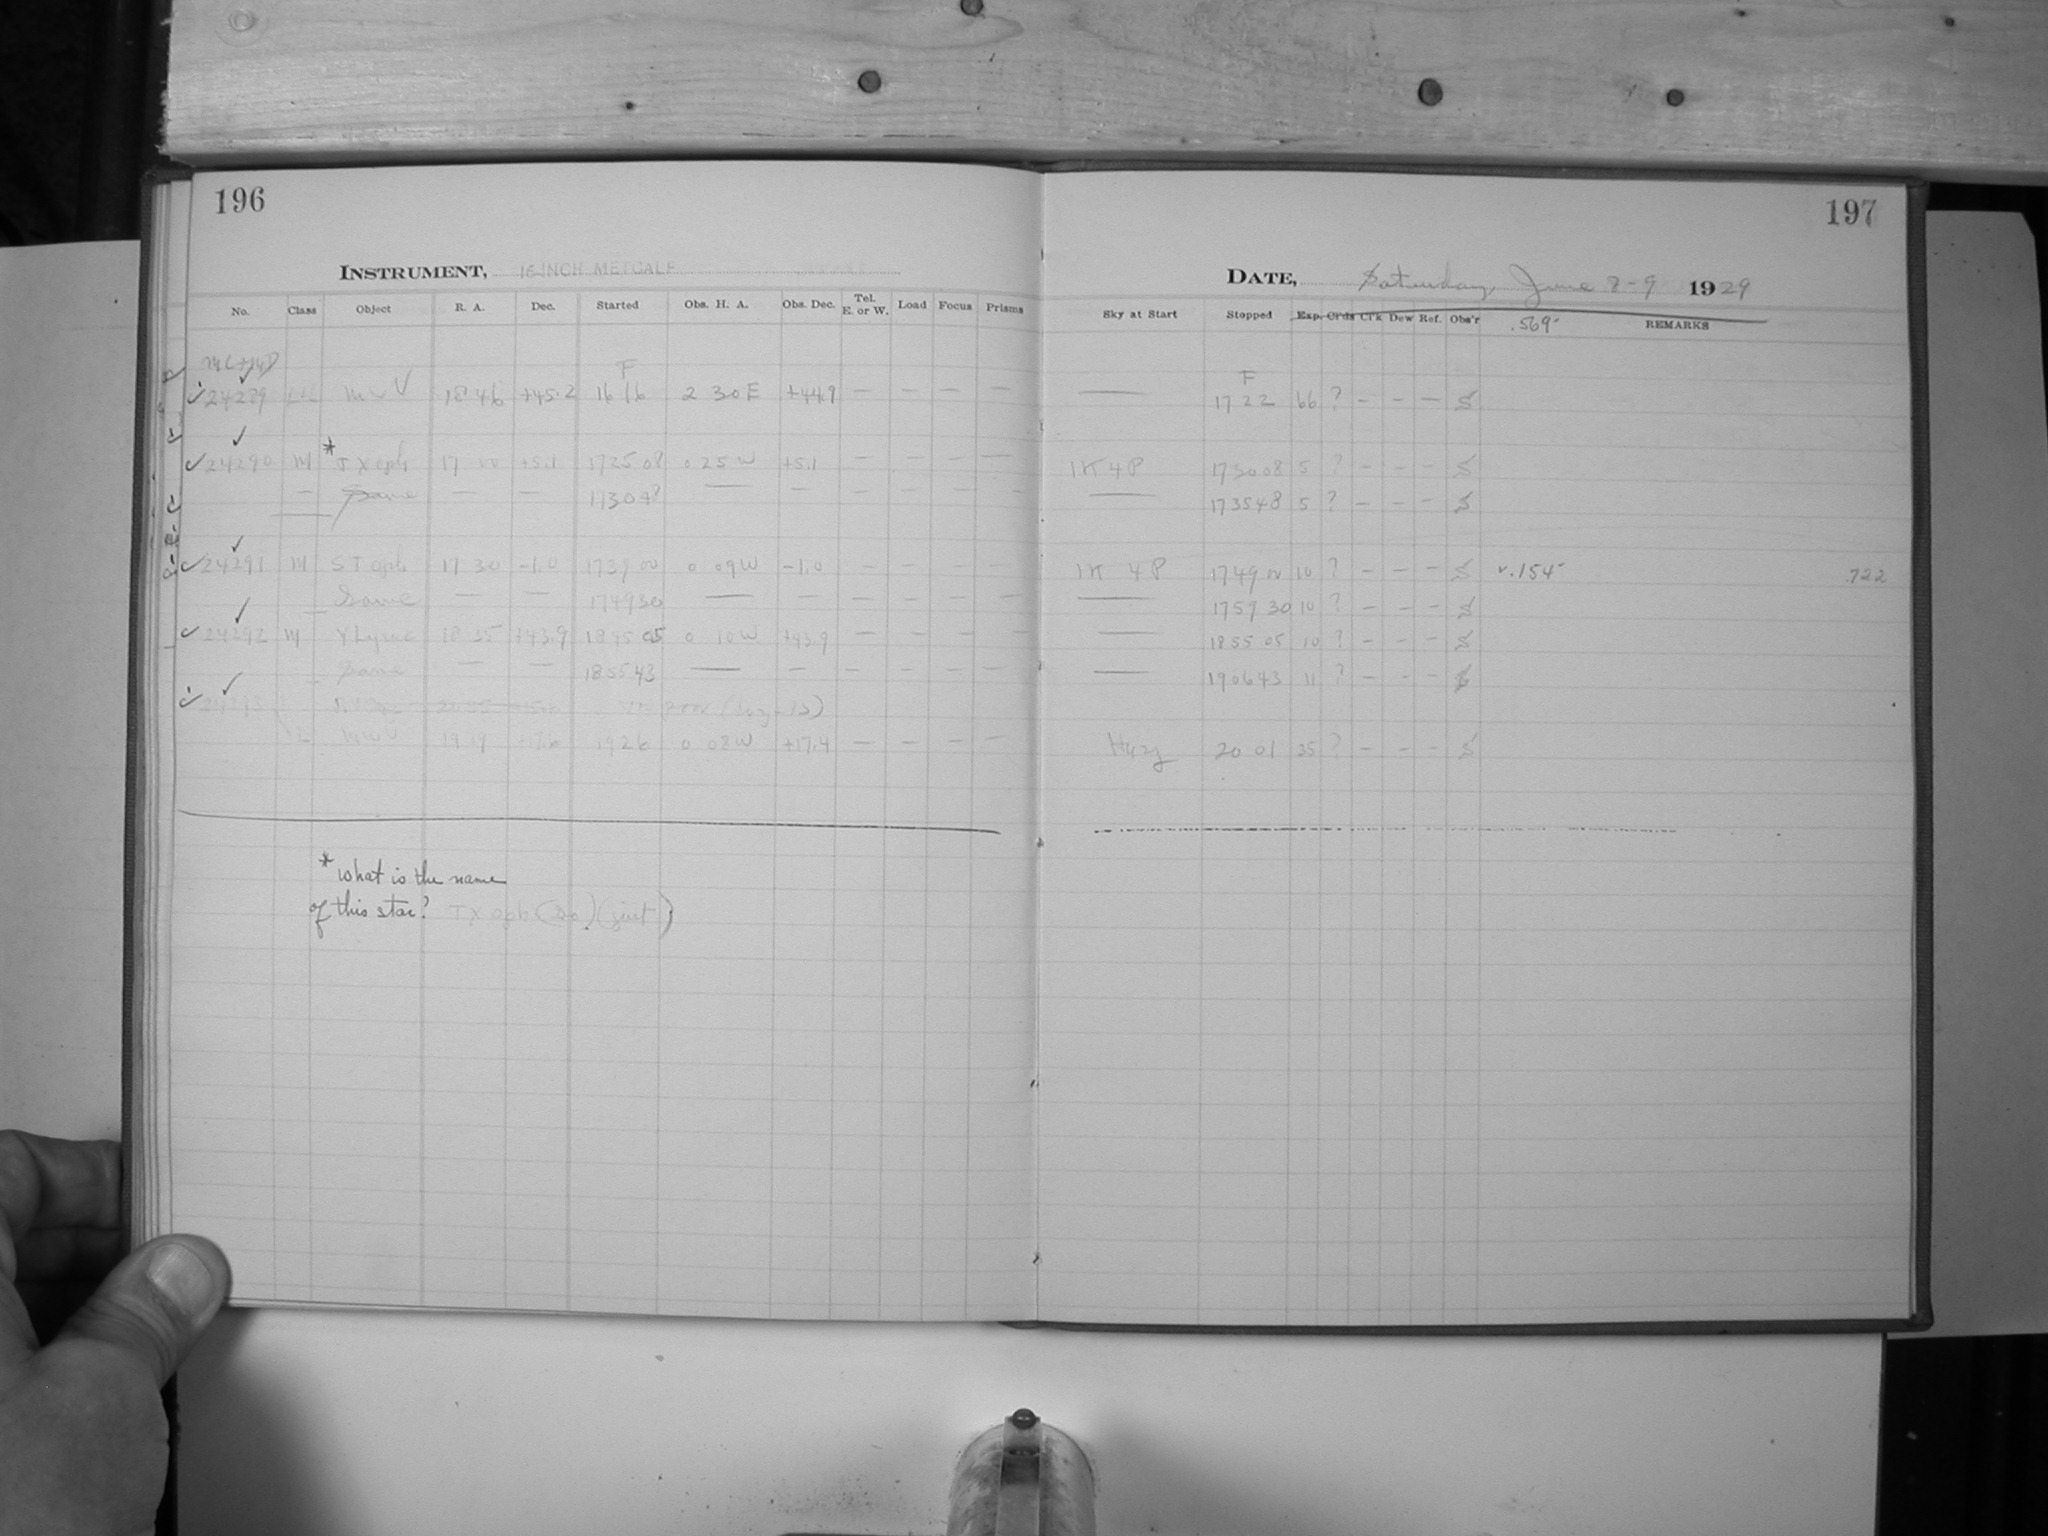 196
INSTRUMENT, 16-INCH METCALF
No. Class Object R. A. Dec. Started Obs. H. A. Obs. Dec. Tel. E. or W. Load Focus Prisms
F
24289 MWV 18 46 +45.2 16 16 2 30 E +44.9 — — — —
24290 M * TX Oph 17 00 +5.1 17 25 08 0 25 W +5.1 — — — —
— Same — — — — — — — —
24291 M ST Oph 17 30 -1.0 17 39 00 0 09 W -1.0 — — — —
Same — — 17 49 30 — — — — — —
24292 M Y Lyrae 18 35 +43.9 18 45 05 0 10 W +43.9 — — — —
Same — — 18 55 43 — — — — — —
24293
MWV 19 19 19 26 0 08 W +17.4 — — — —
* What is the name
of this star? TX Oph
197
DATE, Saturday, June 8-9 1929
Sky at Start Stopped Exp. Cl'ds Cl'k Dew Ref. Obs'r .569 REMARKS
F
— 17 22 66 ? — — — S
1K 4P 17 30 08 5 ? — — — S
— 17 35 48 5 ? — — — S
1K 4P 17 49 00 10 ? — — — S v.154 .722
— 17 59 30 10 ? — — — S
— 18 55 05 10 ? — — — S
— 19 06 43 11 ? — — — S
Hazy 20 01 35 ? — — — S